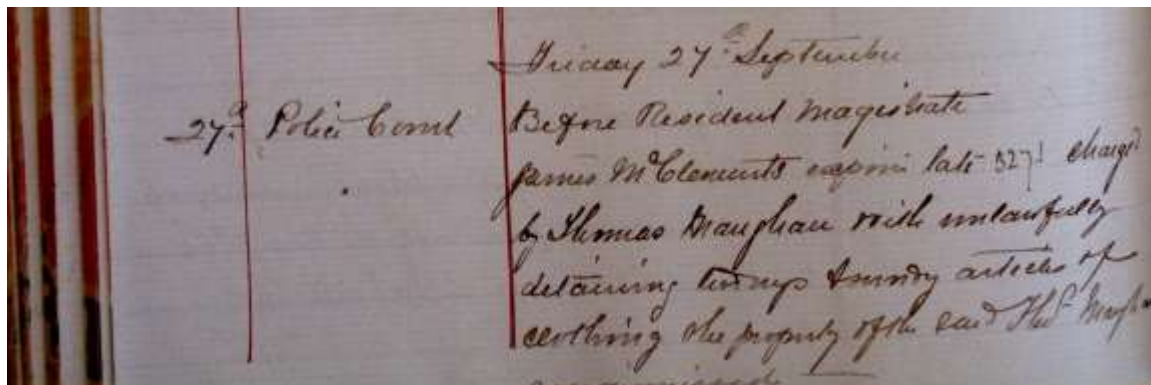 Friday 27th September
27th Police Court Before Resident Magistrate
James McClements expiree late 8271 charged
by Thomas Maughan with unlawfully
detaining two rugs & sundry articles of
clothing the property of the said Thos Maugha